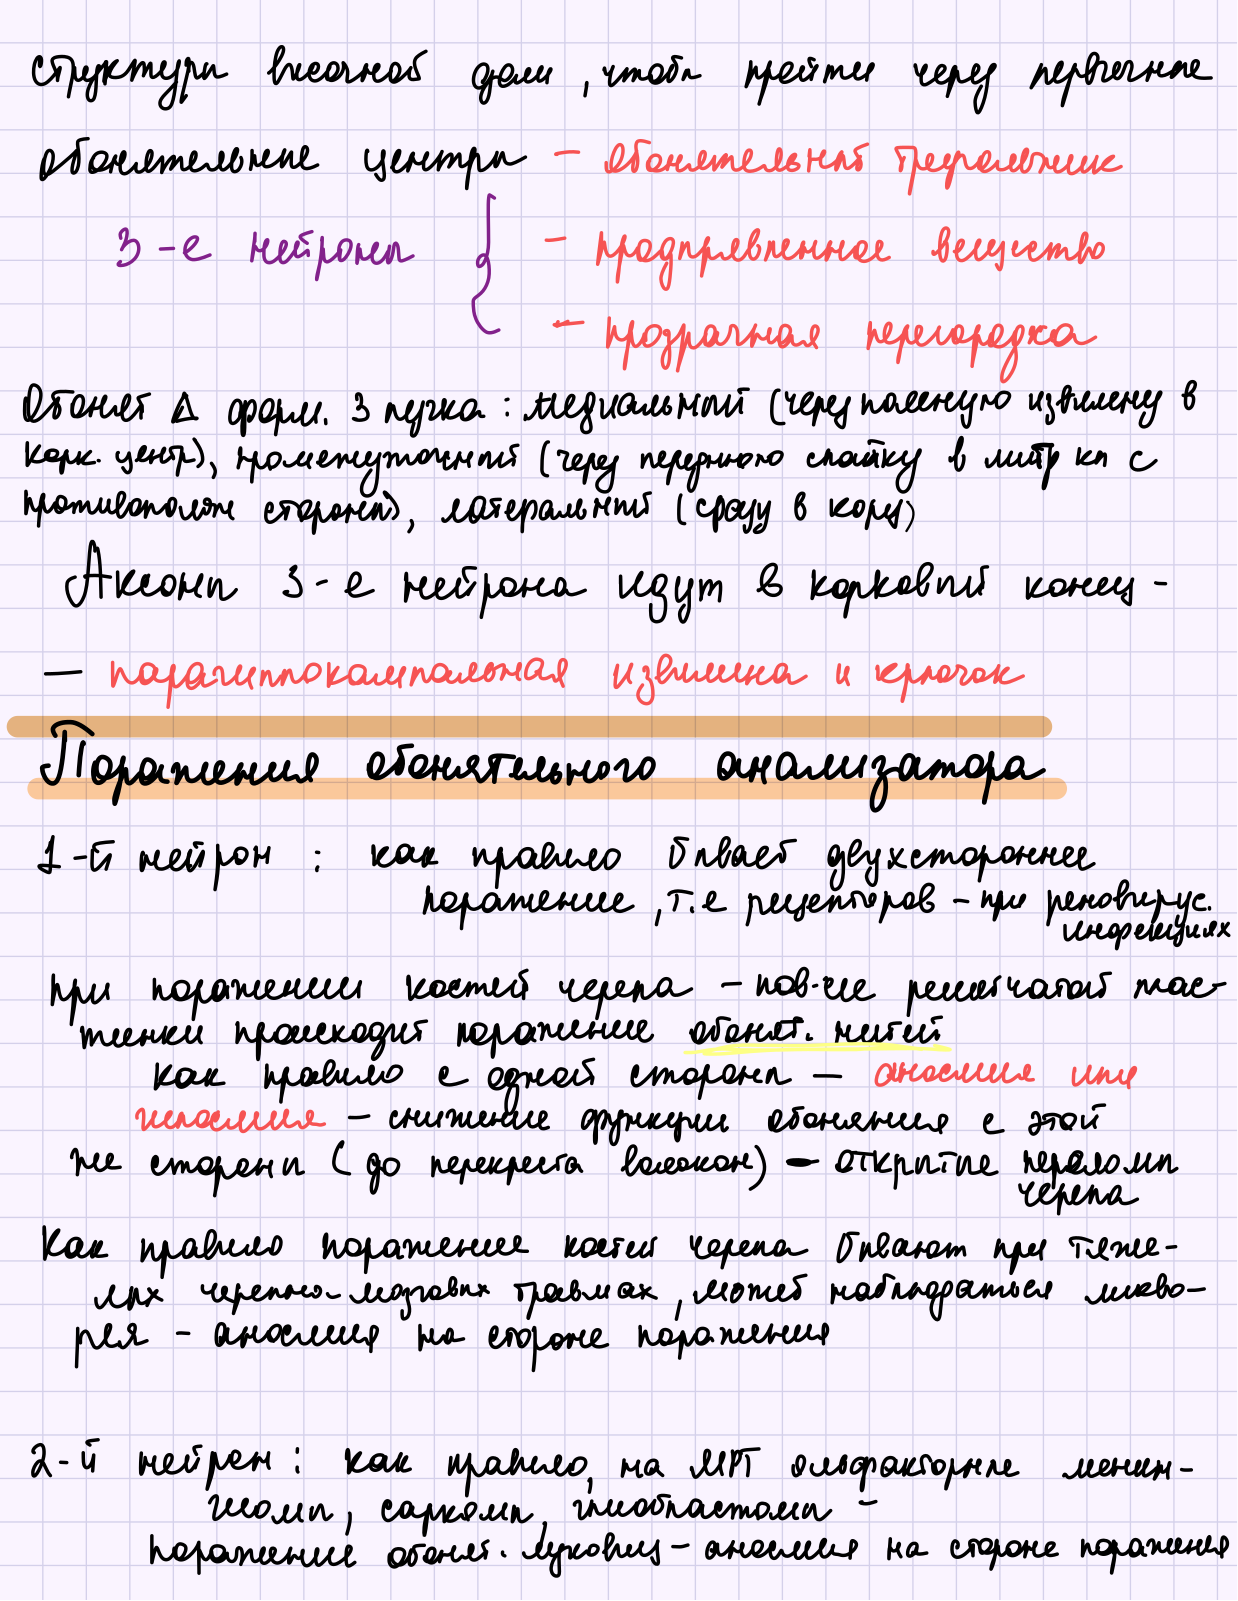 структуры височной доли, чтобы пройти через первичные
обонятельные центры – обонятельный треугольник
3-е нейроны { – продырявленное вещество
– прозрачная перегородка
Обонят Δ форм. 3 пучка: медиальный (через поясную извилину в
корк. центр), промежуточный (через переднюю спайку в митр кл с
противополож стороны), латеральный (сразу в кору)
Аксоны 3-е нейрона идут в корковый конец –
– парагиппокампальная извилина и крючок
Поражения обонятельного анализатора
1-й нейрон : как правило бывает двухстороннее
поражение, т.е рецепторов – при риновирус.
инфекциях
При поражении костей черепа – пов-ие решетчатой плас-
тинки происходит поражение обонят. нитей
как правило с одной стороны – аносмия или
гипосмия – снижение функции обоняния с этой
же стороны (до перекреста волокон) – открытые переломы
черепа
Как правило поражение костей черепа бывают при тяже-
лых черепно-мозговых травмах, может наблюдаться ликво-
рея – аносмия на стороне поражения
2-й нейрон: как правило, на МРТ ольфакторные менин-
гиомы, саркомы, глиобластомы –
поражение обонят. луковиц – аносмия на стороне поражения